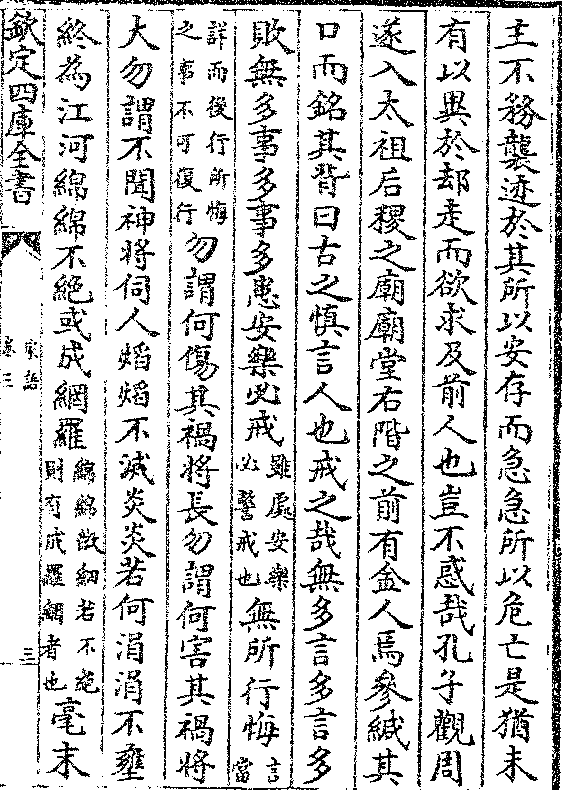 主不務襲迹於其所以安存而急急所以危亡是猶未
有以異於却走而欲求及前人也豈不惑哉孔子觀周
遂入太祖后稷之廟廟堂右階之前有金人焉參緘其
口而銘其背曰古之慎言人也戒之哉無多言多言多
敗無多事多事多患安樂必戒雖處安樂必警戒也無所行悔言當
詳而後行所悔之事不可復行勿謂何傷其禍將長勿謂何害其禍將
大勿謂不聞神將伺人焰焰不滅炎炎若何涓涓不壅
終為江河綿綿不絶或成網羅綿綿微細若不絶則有成羅網者也毫末
欽定四庫全書
家語
卷三
三